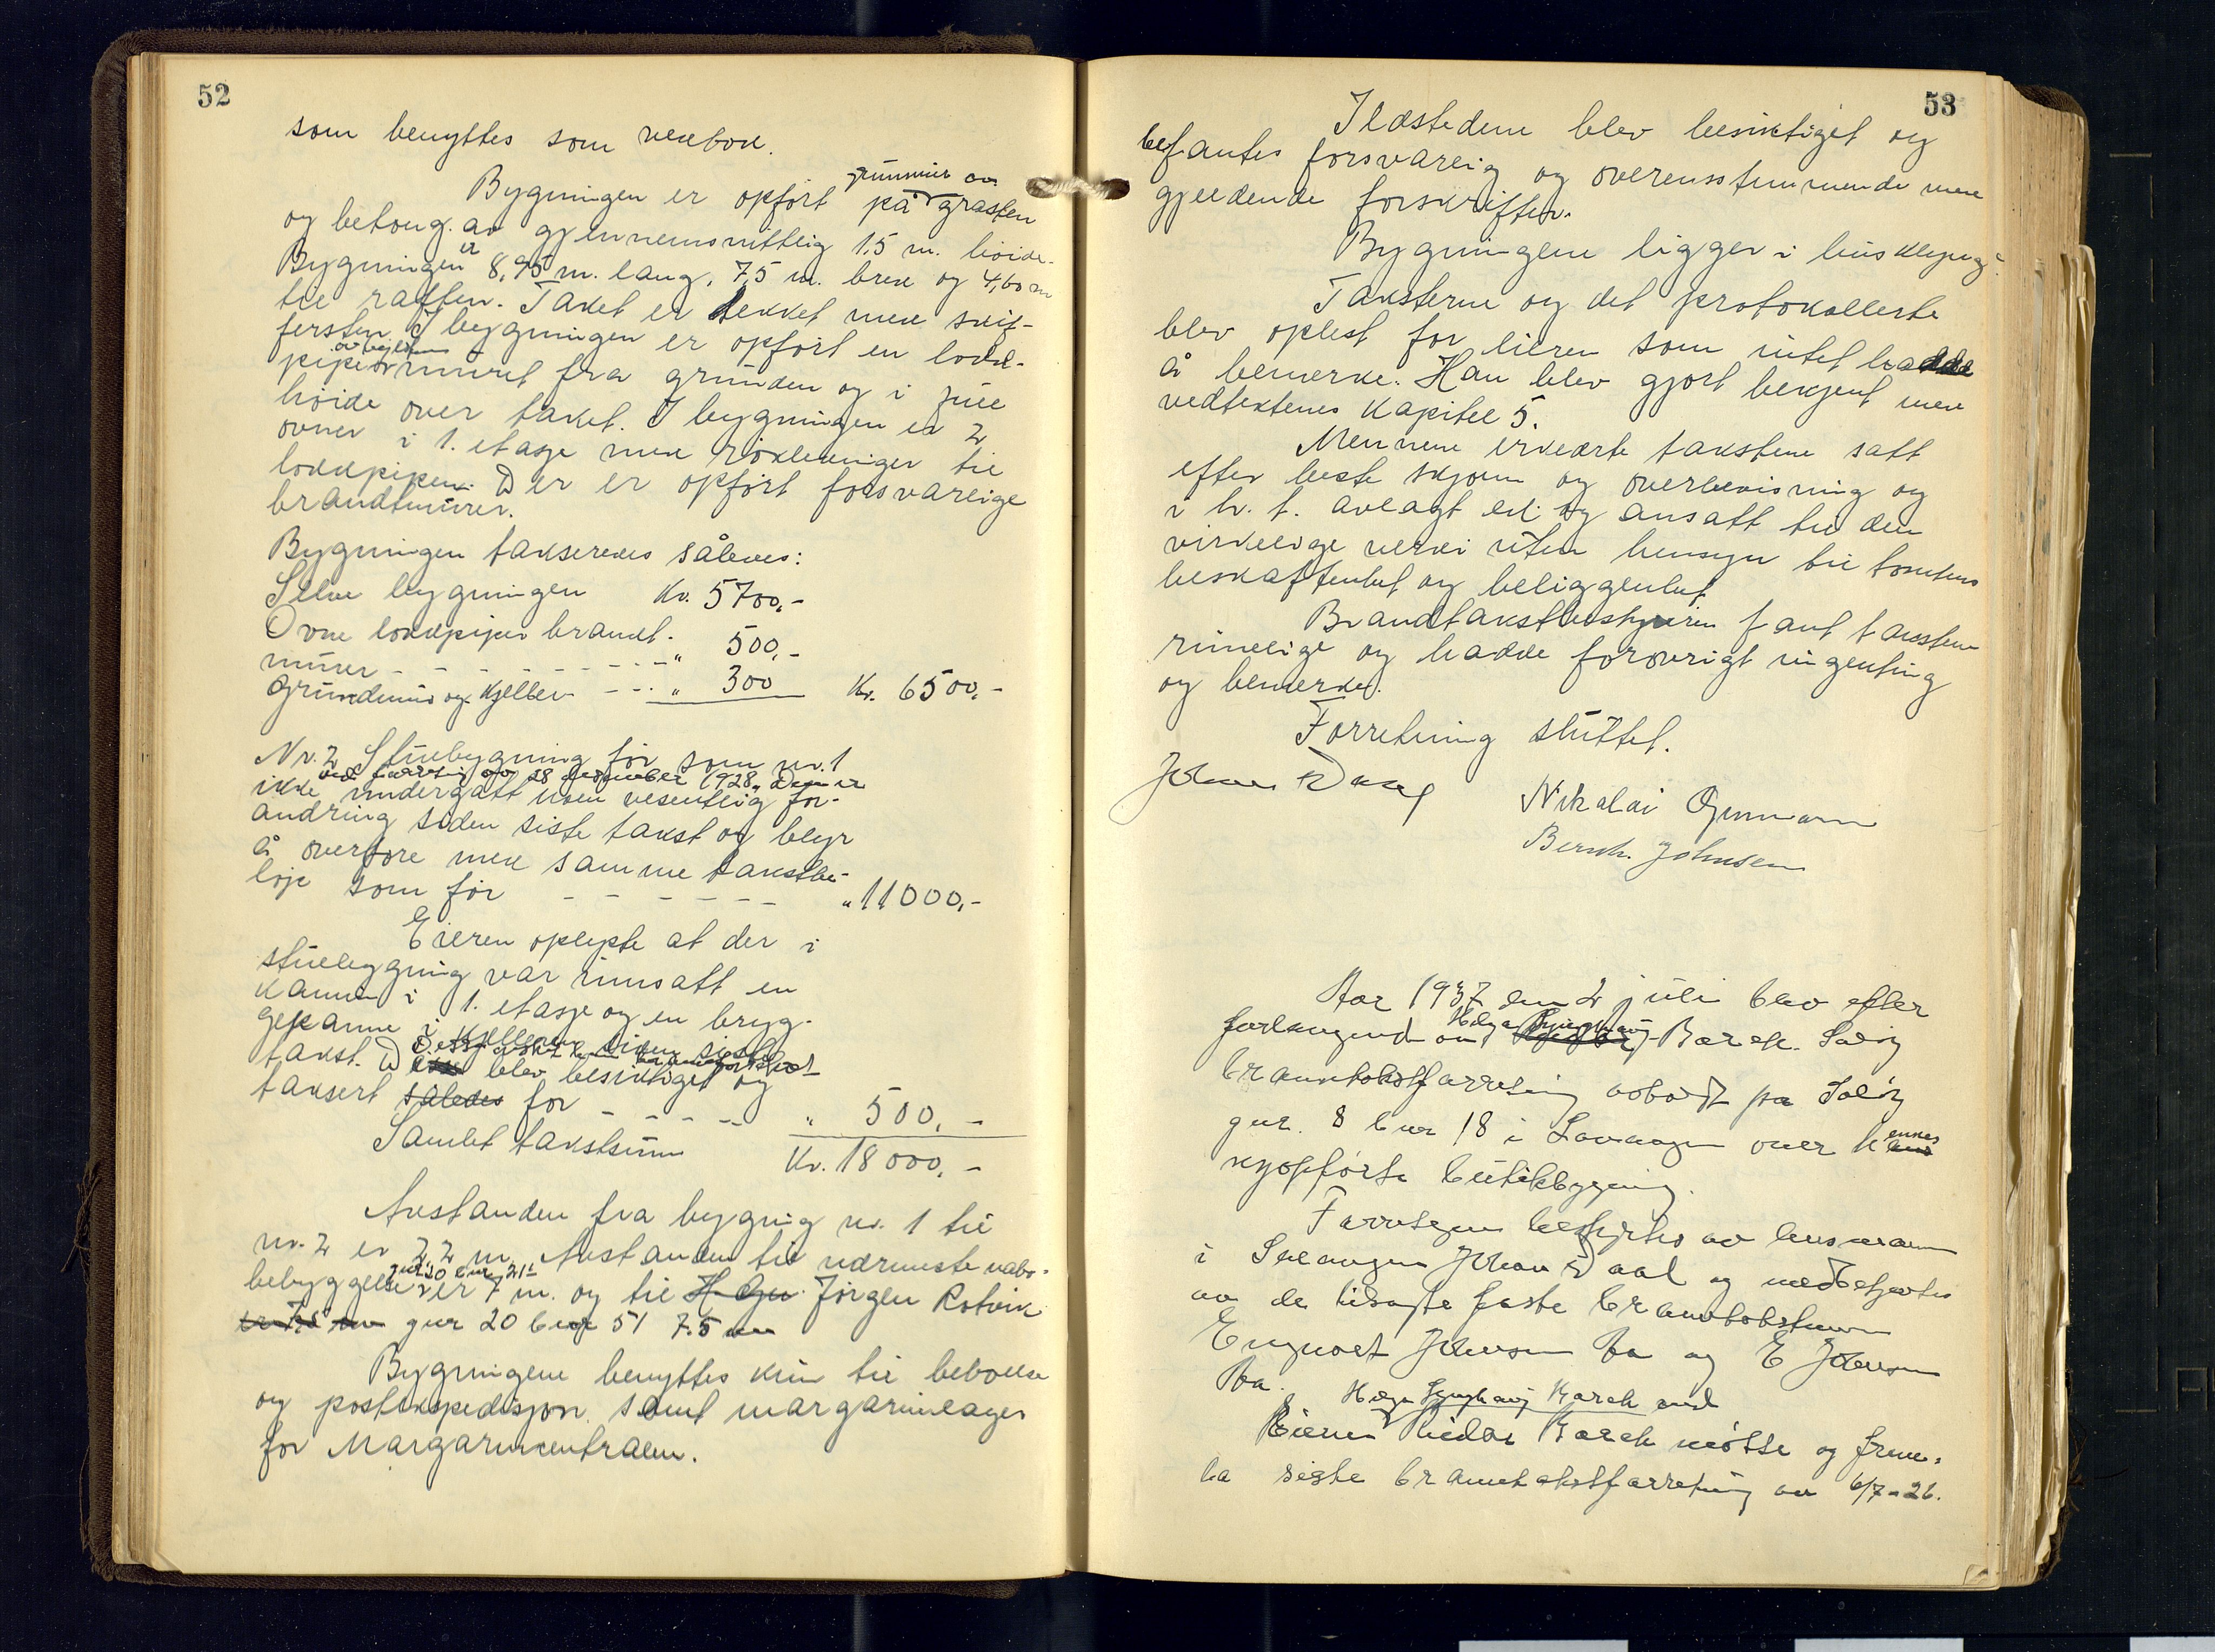 52
som benyttes som vedbod.
Bygningen er opført på grunnmur av gråsten
og betong. av gjennemsnittlig 1,5 m. høide.
Bygningen er 8,95 m. lang, 7,5 m. bred og 4,60 m
til raften. Taket er tekket med skif-
fersten. I bygningen er opført en lodd-
pipe av teglsten muret fra grunden og i full
høide over taket. I bygningen er 2
ovner i 1. etasje med rökledninger til
loddpipen. Der er opført forsvarlige
brandmurer.
Bygningen takseredes således:
Selve bygningen Kr. 5700,-
Ovne loddpiper brandt-
murer - - - - - - - - - " 500,-
Grundmur og kjeller - - - " 300 Kr. 6500,-
Nr. 2 Stuebygning før som nr. 1
ved forretn. av 28 desember 1928. Den er
ikke undergått noen vesentlig for-
andring siden siste takst og blir
å overføre med samme takstbe-
løp som før - - - - - - " 11000,-
Eieren oplyste at der i
stuebygning var innsatt en
kamin i 1. etasje og en bryg-
gepanne i kjelleren siden siste
takst. Disse blev besiktiget og
taksert således for - - - - - " 500,-
Samlet takstsum Kr. 18000,-
Avstanden fra bygning nr. 1 til
nr. 2 er 22 m. Avstanden til nærmeste nabo-
bebyggelse gnr 20 bnr 21 er 7 m. og til Jørgen Rotvik
gnr 20 bnr 51 7.5 m
Bygningene benyttes kun til beboelse
og postekspedisjon. samt margarinlager
for Margarincentralen.
53
Ildstedene blev besiktiget og
befantes forsvarlig og overensstemmende med
gjeldende forskrifter.
Bygningene ligger i husklynge.
Taksterne og det protokollerte
blev oplest for eieren som intet hadde
å bemerke. Han blev gjort bekjent med
vedtektenes kapitel 5.
Mennene erklærte takstene satt
efter beste skjønn og overbevisning og
i h. t. avlagt ed. og ansatt til den
virkelige verdi uten hensyn til tomtens
beskaffenhet og beliggenhet.
Brandtakstbestyreren fant takstene
rimelige og hadde forøvrigt ingenting
og bemerke.
Forretning sluttet.
Johan Daal
Nikolai
Bernh. Johnsen
Aar 1937 den 2 juli blev efter
forlangende av Helga Barek. Saløy
branntakstforretning avholdt på Saløy
gnr. 8 bnr 18 i Lavangen over hennes
nyopførte butikbygning.
Forretningen bestyrtes av lensmannen
i Salangen Johan Daal og medbetjentes
av de tilsagte faste branntakstmenn
Engvart Johnsen Aa og E Johnsen
Aa.
Helga Barek
Eieren Barek møtte og frem-
la siste branntakstforretning av 6/7-26.